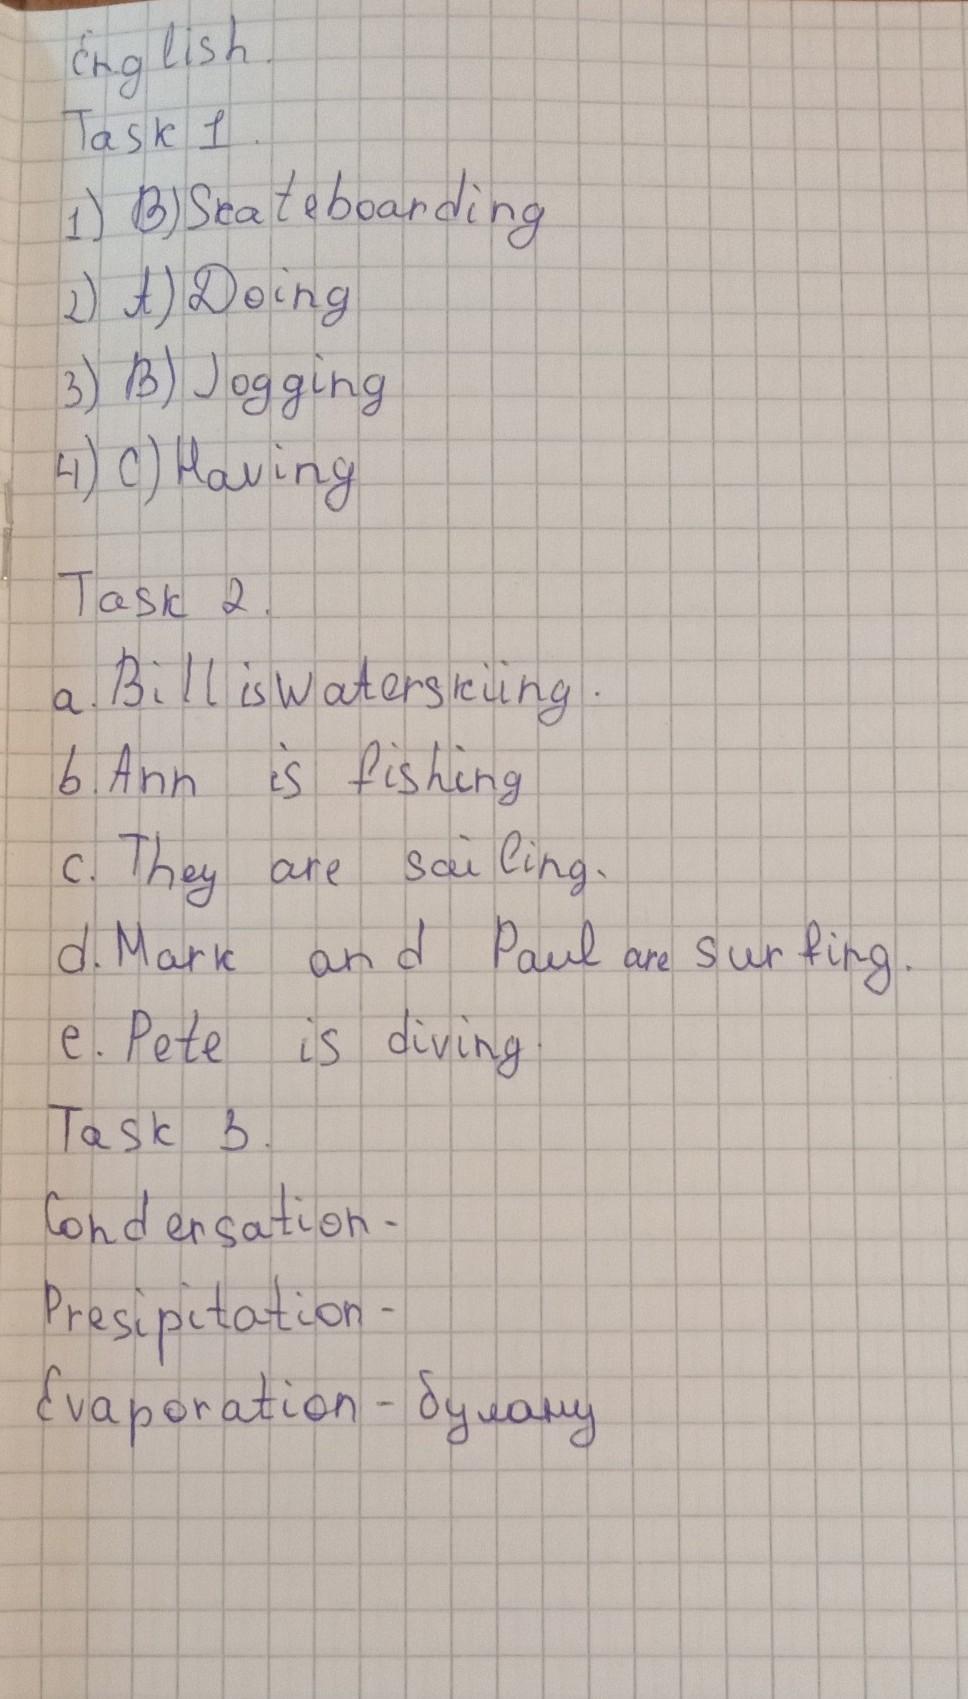 English.
Task 1.
1) B) Skateboarding
2) A) Doing
3) B) Jogging
4) C) Having
Task 2.
a. Bill is waterskiing.
b. Ann is fishing
c. They are sailing.
d. Mark and Paul are surfing.
e. Pete is diving.
Task 3.
Condensation -
Presipitation -
Evaporation - булану